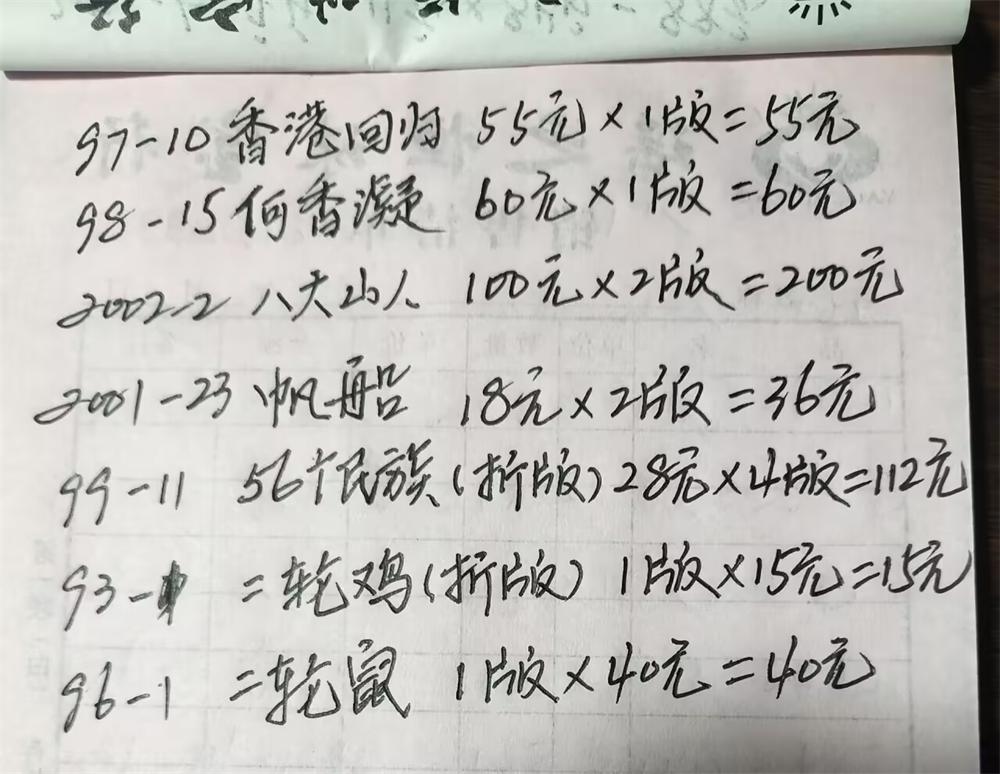 97-10 香港回归 55元×1版=55元
98-15 何香凝 60元×1版=60元
2002-2 八大山人 100元×2版=200元
2001-23 帆船 18元×2版=36元
99-11 56个民族(折版)28元×4版=112元
93-1 二轮鸡(折版) 1版×15元=15元
96-1 二轮鼠 1版×40元=40元